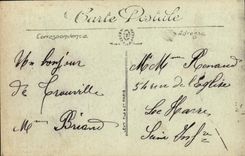 Carte Postale
Correspondance
Adresse
Un bonjour
de Trouville
Mme Briand
Mr Mme Renaud
54 rue de l'Eglise
Le Havre
Seine Infre